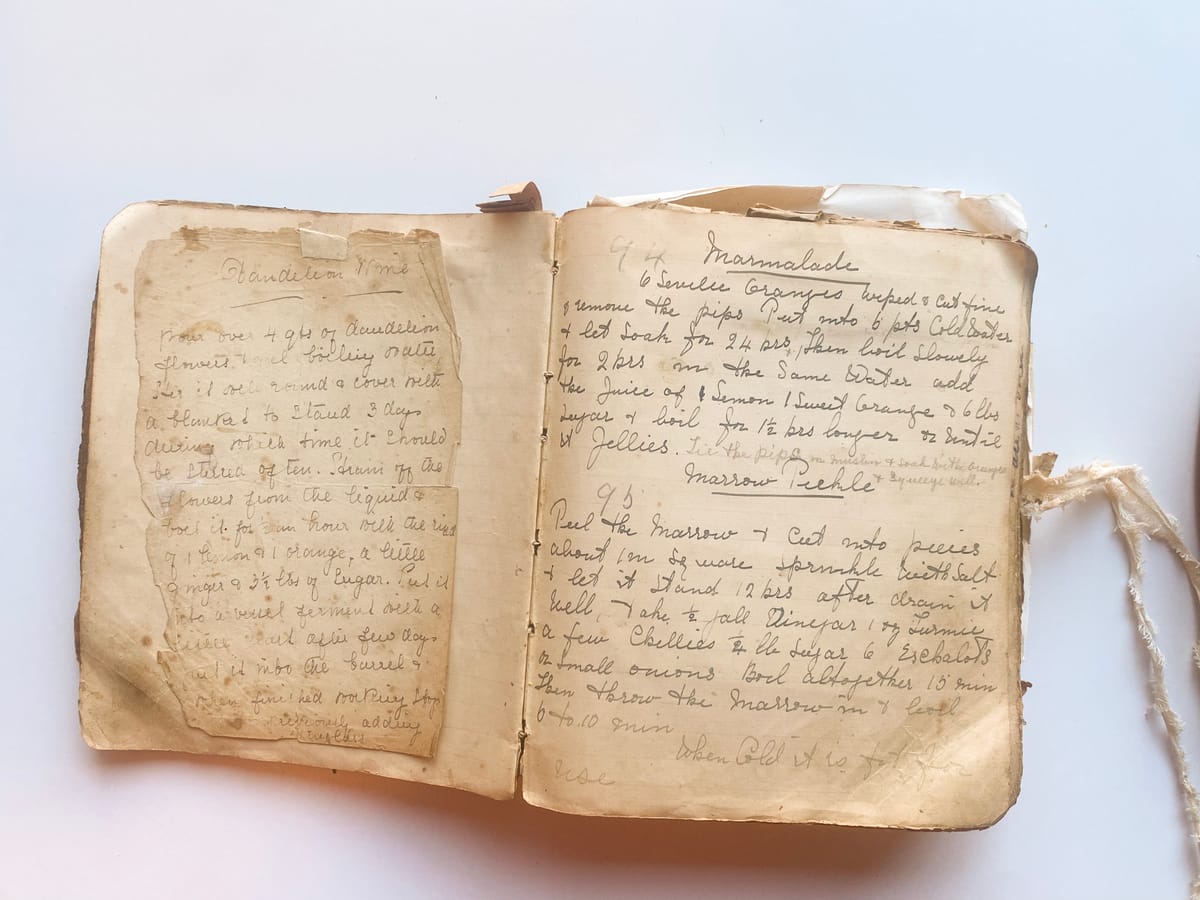 Dandelion Wine
Pour over 4 qts of dandelion
flowers boiling water
Stir it well round & cover with
a blanket to Stand 3 days
during which time it Should
be Stirred often. Strain off the
flowers from the liquid &
boil it for ½ an hour with the rind
of 1 lemon & 1 orange, a little
ginger & 3½ lbs of Sugar. Put it
into a vessel ferment with a
little after few days
put it into the barrel &
when finished working Stop
previously adding
94
Marmalade
6 Seville Oranges wiped & cut fine
& remove the pips Put into 6 pts Cold Water
& let Soak for 24 hrs, Then boil Slowly
for 2 hrs in the Same Water add
the Juice of 1 Lemon 1 Sweet Orange & 6 lbs
Sugar & boil for 1½ hrs longer or Until
it Jellies. Tie the pips in muslin & soak with oranges
& squeeze well.
Marrow Pickle
95
Peel the Marrow & Cut into pieces
about 1 in Square Sprinkle with Salt
& let it Stand 12 hrs after drain it
Well, Take ½ gall Vinegar 1 oz Turmic
a few Chillies ½ lb Sugar 6 Eschalots
or Small onions Boil altogether 15 min
Then throw the Marrow in & boil
6 to 10 min
When Cold it is fit for
use